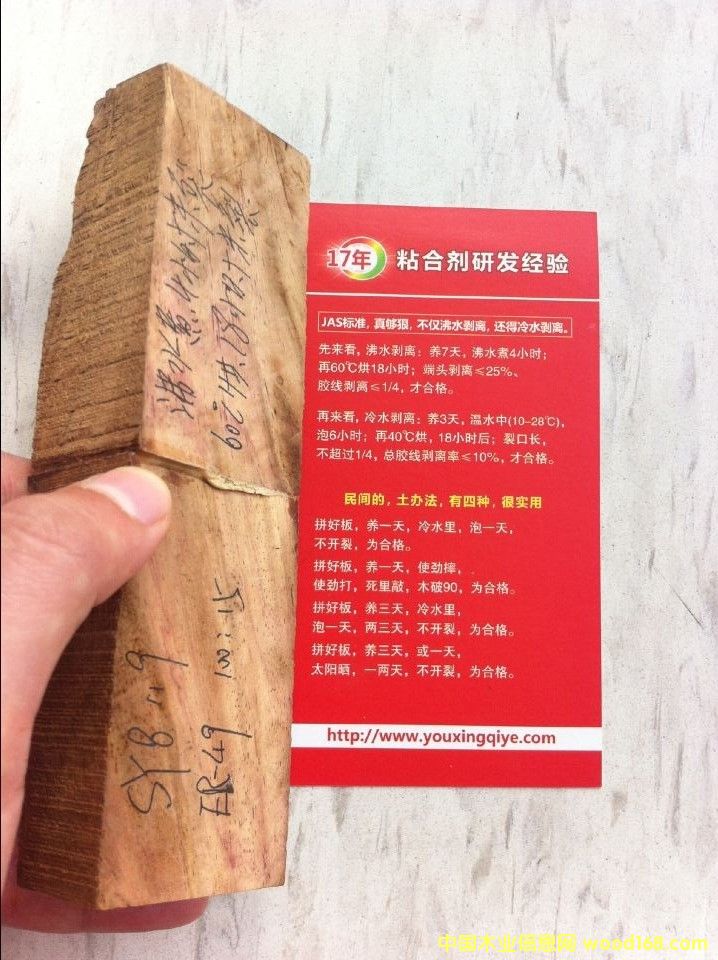 17年 粘合剂研发经验
JAS标准，真够狠，不仅沸水剥离，还得冷水剥离。
先来看，沸水剥离：养7天，沸水煮4小时；
再60℃烘18小时；端头剥离≤25%、
胶线剥离≤1/4，才合格。
再来看，冷水剥离：养3天，温水中(10–28℃)，
泡6小时；再40℃烘，18小时后；裂口长，
不超过1/4，总胶线剥离率≤10%，才合格。
民间的，土办法，有四种，很实用
拼好板，养一天，冷水里，泡一天，
不开裂，为合格。
拼好板，养一天，使劲摔，
使劲打，死里敲，木破90，为合格。
拼好板，养三天，冷水里，
泡一天，两三天，不开裂，为合格。
拼好板，养三天，或一天，
太阳晒，一两天，不开裂，为合格。
http://www.youxingqiye.com
沸水煮4小时
SYB 119
100:15
中国木业信息网 wood168.com